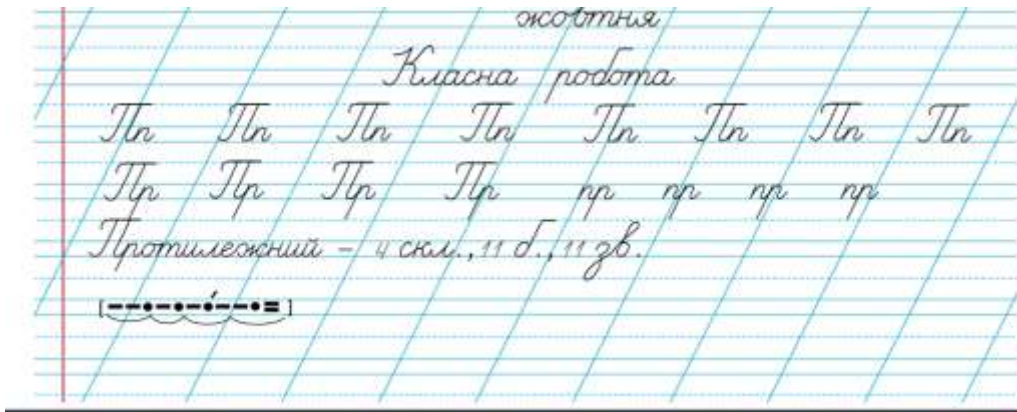 жовтня
Класна робота
Пп Пп Пп Пп Пп Пп Пп Пп
Пр Пр Пр Пр пр пр пр пр
Протилежний – 4 скл., 11 б., 11 зв.
[– – • – • – • – – • =]